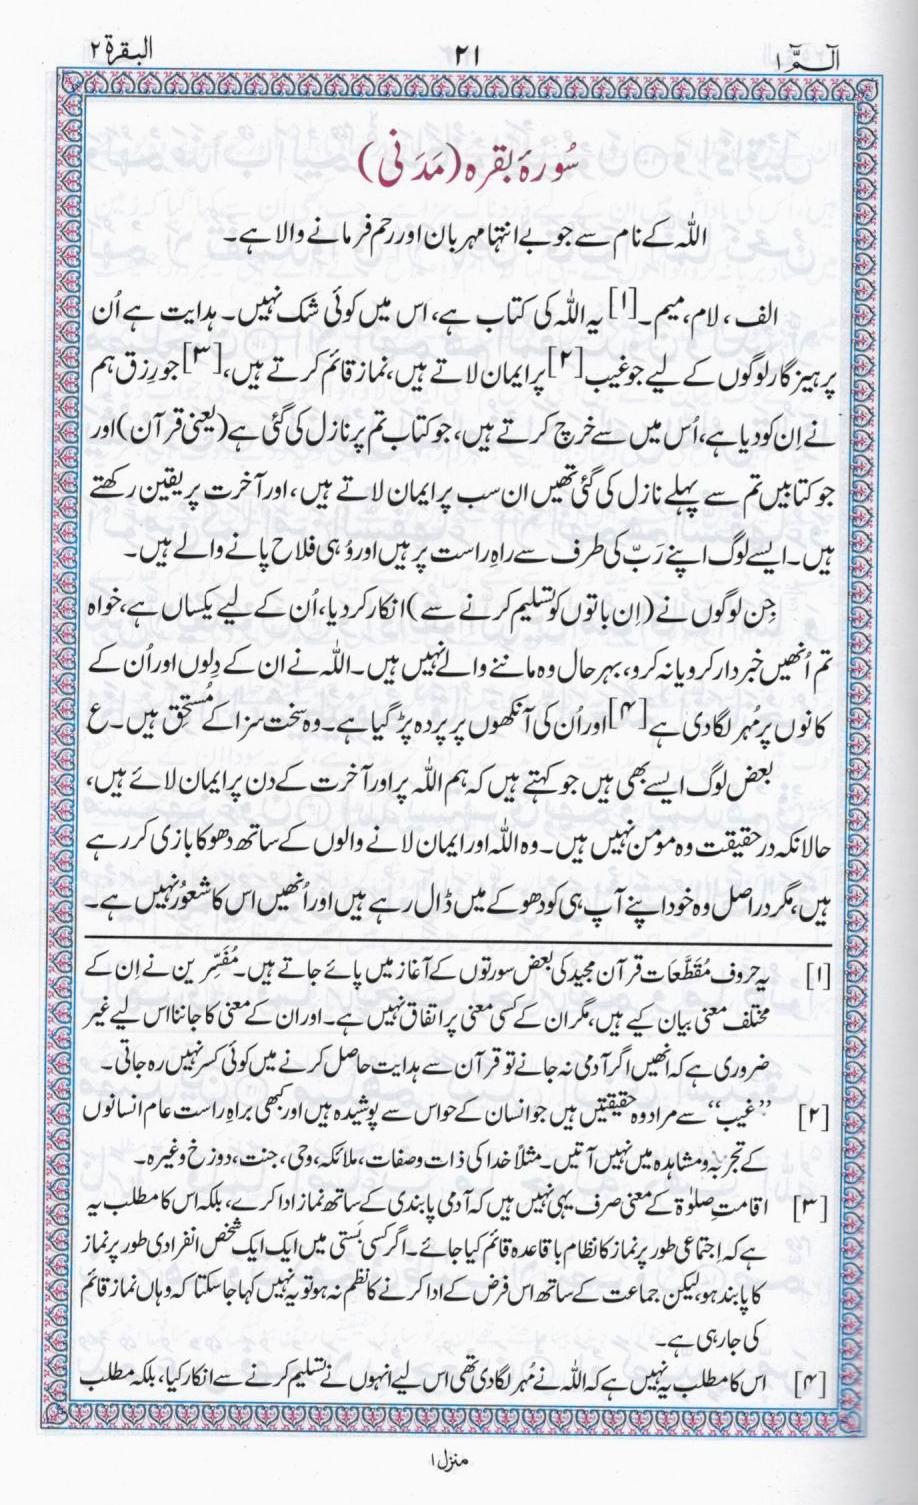 الٓمّٓ ۱
۲۱
البقرۃ ۲
سُورۂ بقرہ (مَدَنی)
اللہ کے نام سے جو بے انتہا مہربان اور رحم فرمانے والا ہے۔
الف، لام، میم۔[۱] یہ اللہ کی کتاب ہے، اس میں کوئی شک نہیں۔ ہدایت ہے اُن
پرہیزگار لوگوں کے لیے جو غیب[۲] پر ایمان لاتے ہیں، نماز قائم کرتے ہیں،[۳] جو رِزق ہم
نے اِن کو دیا ہے، اُس میں سے خرچ کرتے ہیں، جو کتاب تم پر نازل کی گئی ہے (یعنی قرآن) اور
جو کتابیں تم سے پہلے نازل کی گئی تھیں ان سب پر ایمان لاتے ہیں، اور آخرت پر یقین رکھتے
ہیں۔ ایسے لوگ اپنے رَبّ کی طرف سے راہِ راست پر ہیں اور وُہی فلاح پانے والے ہیں۔
جِن لوگوں نے (اِن باتوں کو تسلیم کرنے سے) انکار کر دیا، اُن کے لیے یکساں ہے، خواہ
تم اُنھیں خبردار کرو یا نہ کرو، بہرحال وہ ماننے والے نہیں ہیں۔ اللہ نے ان کے دِلوں اور اُن کے
کانوں پر مُہر لگا دی ہے[۴] اور اُن کی آنکھوں پر پردہ پڑ گیا ہے۔ وہ سخت سزا کے مُستحق ہیں۔ ع
بعض لوگ ایسے بھی ہیں جو کہتے ہیں کہ ہم اللہ پر اور آخرت کے دن پر ایمان لائے ہیں،
حالانکہ درحقیقت وہ مومن نہیں ہیں۔ وہ اللہ اور ایمان لانے والوں کے ساتھ دھوکا بازی کر رہے
ہیں، مگر دراصل وہ خود اپنے آپ ہی کو دھوکے میں ڈال رہے ہیں اور اُنھیں اس کا شعوُر نہیں ہے۔
[۱] یہ حروف مُقطّعات قرآن مجید کی بعض سورتوں کے آغاز میں پائے جاتے ہیں۔ مُفَسِّرین نے اِن کے
مختلف معنی بیان کیے ہیں، مگر ان کے کسی معنی پر اتفاق نہیں ہے۔ اور ان کے معنی کا جاننا اس لیے غیر
ضروری ہے کہ انھیں اگر آدمی نہ جانے تو قرآن سے ہدایت حاصل کرنے میں کوئی کسر نہیں رہ جاتی۔
[۲] ”غیب“ سے مراد وہ حقیقتیں ہیں جو انسان کے حواس سے پوشیدہ ہیں اور کبھی براہِ راست عام انسانوں
کے تجربہ و مشاہدہ میں نہیں آتیں۔ مثلاً خدا کی ذات و صفات، ملائکہ، وحی، جنت، دوزخ وغیرہ۔
[۳] اقامتِ صلوٰۃ کے معنی صرف یہی نہیں ہیں کہ آدمی پابندی کے ساتھ نماز ادا کرے، بلکہ اس کا مطلب یہ
ہے کہ اِجتماعی طور پر نماز کا نظام باقاعدہ قائم کیا جائے۔ اگر کسی بَستی میں ایک ایک شخص انفرادی طور پر نماز
کا پابند ہو، لیکن جماعت کے ساتھ اس فرض کے ادا کرنے کا نظم نہ ہو تو یہ نہیں کہا جا سکتا کہ وہاں نماز قائم
کی جا رہی ہے۔
[۴] اس کا مطلب یہ نہیں ہے کہ اللہ نے مُہر لگا دی تھی اس لیے انہوں نے تسلیم کرنے سے انکار کیا، بلکہ مطلب
منزل ۱